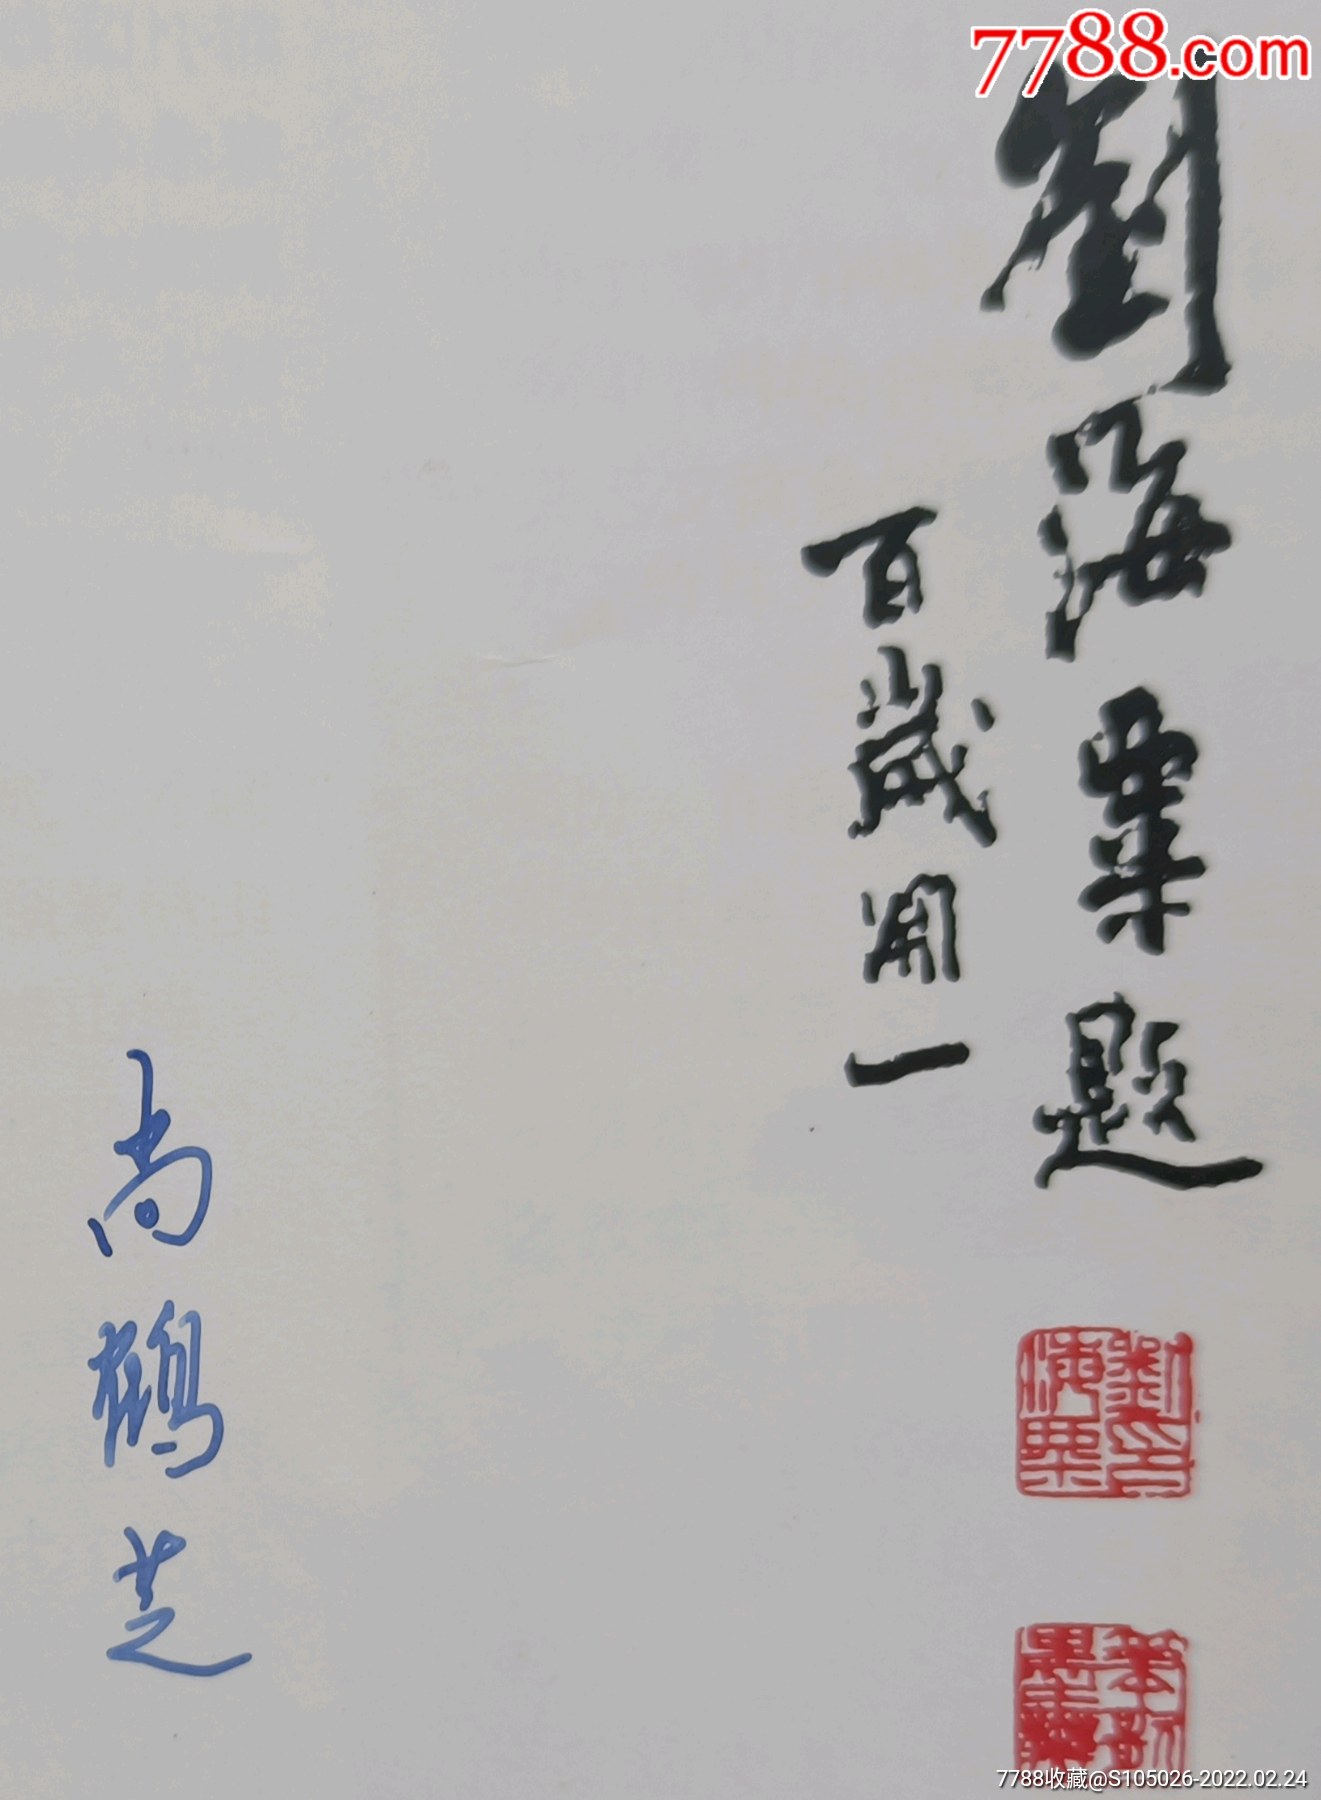 7788.com
劉海粟題
百歲開一
尚鶴芝
劉海粟印
7788收藏@S105026-2022.02.24